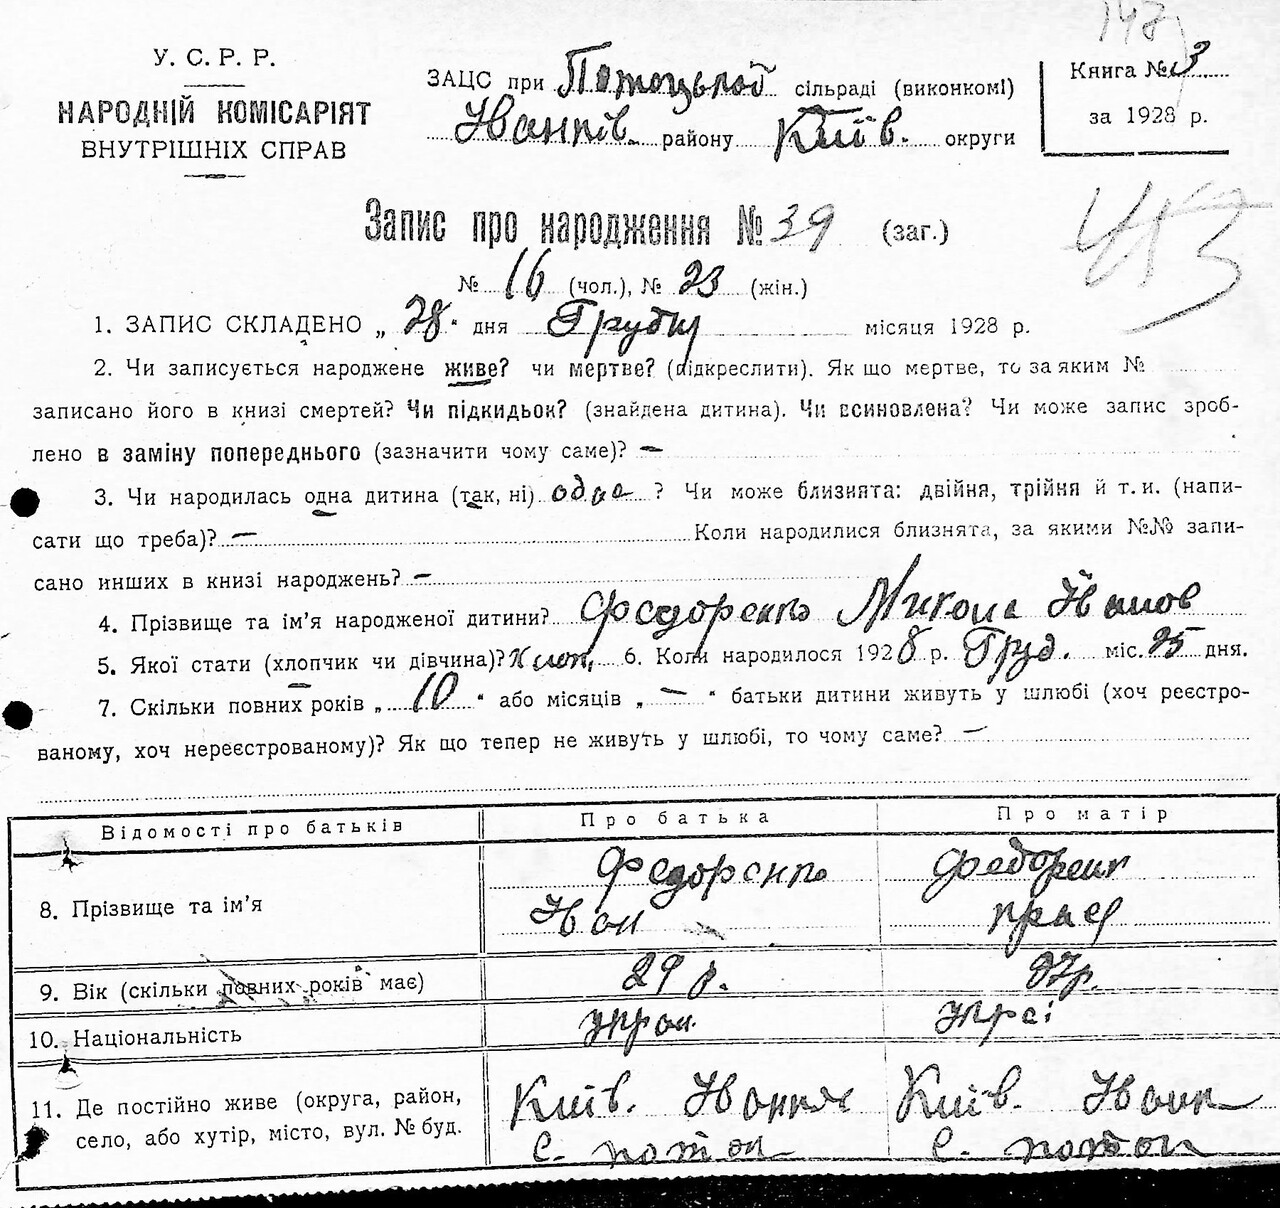 147
У. С. Р. Р.
НАРОДНІЙ КОМІСАРІЯТ
ВНУТРІШНІХ СПРАВ
ЗАЦС при Потоцькой сільраді (виконкомі)
Іванків. району Київ. округи
Книга № 3
за 1928 р.
Запис про народження № 39 (заг.)
№ 16 (чол.), № 23 (жін.)
1. ЗАПИС СКЛАДЕНО „ 28 “ дня Грудня місяця 1928 р.
2. Чи записується народжене живе? чи мертве? (підкреслити). Як що мертве, то за яким №
записано його в книзі смертей? Чи підкидьок? (знайдена дитина). Чи всиновлена? Чи може запис зроб-
лено в заміну попереднього (зазначити чому саме)? —
3. Чи народилась одна дитина (так, ні) одна ? Чи може близнята: двійня, трійня й т. и. (напи-
сати що треба)? — Коли народилися близнята, за якими №№ запи-
сано инших в книзі народжень? —
4. Прізвище та ім’я народженої дитини? Федоренко Микола Іванов
5. Якої стати (хлопчик чи дівчина)? Хлоп. 6. Коли народилося 1928 р. Груд. міс. 25 дня.
7. Скільки повних років „ 10 “ або місяців „ — “ батьки дитини живуть у шлюбі (хоч реєстро-
ваному, хоч нереєстрованому)? Як що тепер не живуть у шлюбі, то чому саме? —
Відомості про батьків Про батька Про матір
8. Прізвище та ім’я Федоренко Федоренк
Іван
9. Вік (скільки повних років має) 29 р. 27 р.
10. Національність украі. украі
11. Де постійно живе (округа, район, Київ. Іванк Київ. Іванк
село, або хутір, місто, вул. № буд. С. потоки С. потоки